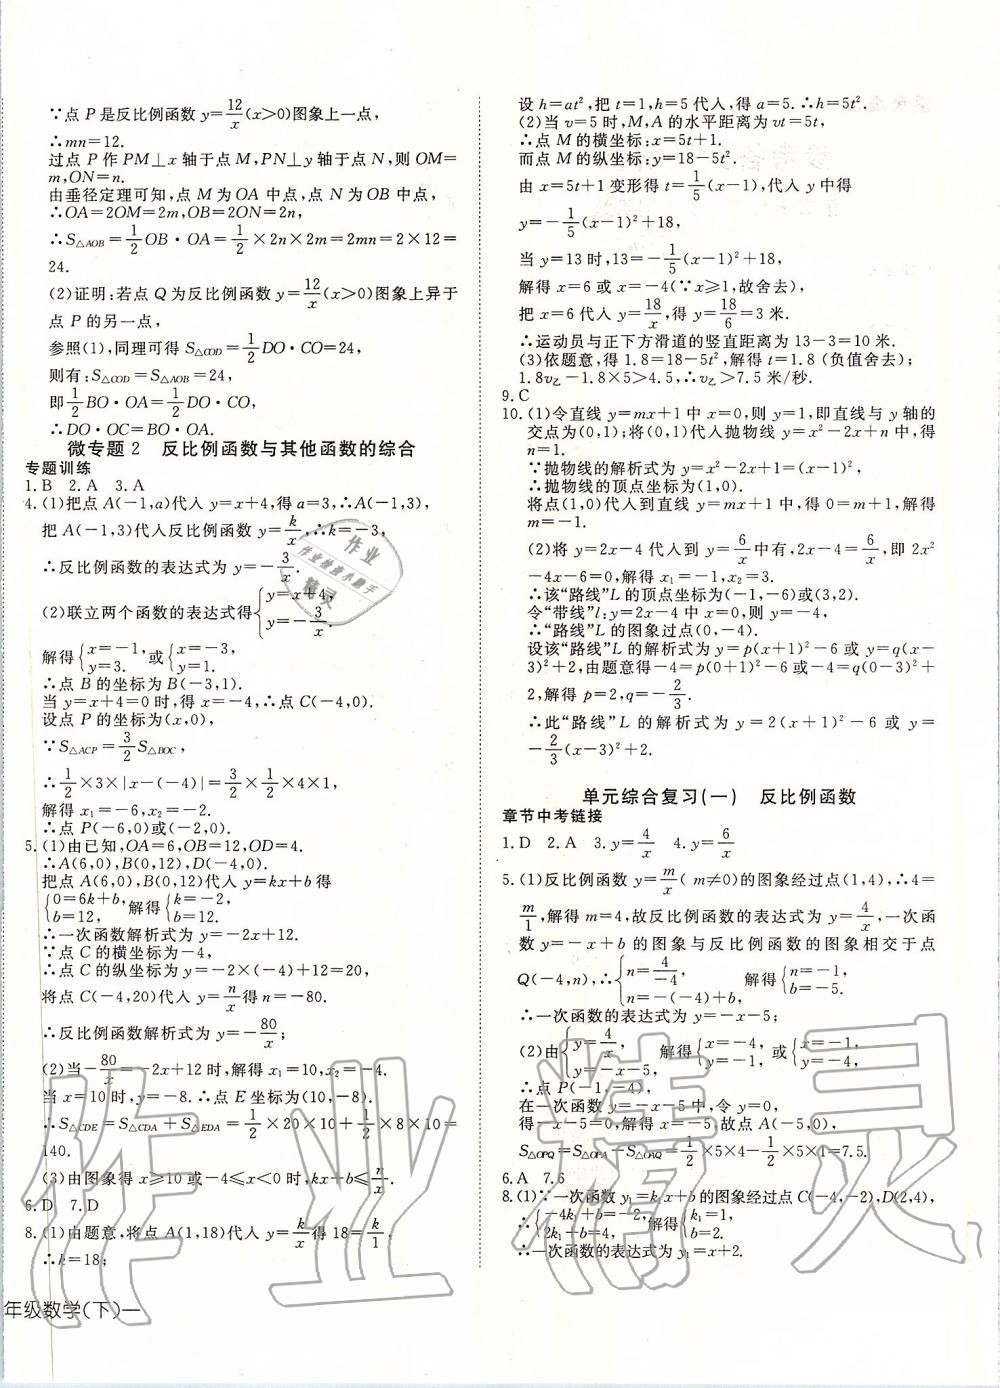 ∵点 P 是反比例函数 y=12/x(x>0)图象上一点,
∴mn=12.
过点 P 作 PM⊥x 轴于点 M,PN⊥y 轴于点 N,则 OM=
m,ON=n.
由垂径定理可知,点 M 为 OA 中点,点 N 为 OB 中点,
∴OA=2OM=2m,OB=2ON=2n,
∴S△AOB=1/2OB·OA=1/2×2n×2m=2mn=2×12=
24.
(2)证明:若点 Q 为反比例函数 y=12/x(x>0)图象上异于
点 P 的另一点,
参照(1),同理可得 S△COD=1/2DO·CO=24,
则有:S△COD=S△AOB=24,
即1/2BO·OA=1/2DO·CO,
∴DO·OC=BO·OA.
微专题 2 反比例函数与其他函数的综合
专题训练
1.B 2.A 3.A
4.(1)把点 A(-1,a)代入 y=x+4,得 a=3,∴A(-1,3),
把 A(-1,3)代入反比例函数 y=k/x,∴k=-3,
∴反比例函数的表达式为 y=-3/x.
(2)联立两个函数的表达式得{y=x+4, y=-3/x.
解得{x=-1, y=3. 或{x=-3, y=1.
∴点 B 的坐标为 B(-3,1).
当 y=x+4=0 时,得 x=-4,∴点 C(-4,0).
设点 P 的坐标为(x,0),
∵S△ACP=3/2S△BOC,
∴1/2×3×|x-(-4)|=3/2×1/2×4×1,
解得 x₁=-6,x₂=-2.
∴点 P(-6,0)或(-2,0).
5.(1)由已知,OA=6,OB=12,OD=4.
∴A(6,0),B(0,12),D(-4,0).
把点 A(6,0),B(0,12)代入 y=kx+b 得
{0=6k+b, b=12, 解得{k=-2, b=12.
∴一次函数解析式为 y=-2x+12.
∵点 C 的横坐标为-4,
∴点 C 的纵坐标为 y=-2×(-4)+12=20,
将点 C(-4,20)代入 y=n/x得 n=-80.
∴反比例函数解析式为 y=-80/x;
(2)当-80/x=-2x+12 时,解得 x₁=10,x₂=-4.
当 x=10 时,y=-8.∴点 E 坐标为(10,-8).
∴S△CDE=S△CDA+S△EDA=1/2×20×10+1/2×8×10=
140.
(3)由图象得 x≥10 或-4≤x<0 时,kx+b≤n/x.
6.D 7.D
8.(1)由题意,将点 A(1,18)代入 y=k/x得 18=k/1,
∴k=18;
年级数学(下)一
设 h=at²,把 t=1,h=5 代入,得 a=5.∴h=5t².
(2)当 v=5 时,M,A 的水平距离为 vt=5t,
∴点 M 的横坐标:x=5t+1.
而点 M 的纵坐标:y=18-5t².
由 x=5t+1 变形得 t=1/5(x-1),代入 y 中得
y=-1/5(x-1)²+18,
当 y=13 时,13=-1/5(x-1)²+18,
解得 x=6 或 x=-4(∵x≥1,故舍去);
把 x=6 代入 y=18/x,得 y=18/6=3 米.
∴运动员与正下方滑道的竖直距离为 13-3=10 米.
(3)依题意,得 1.8=18-5t²,解得 t=1.8 (负值舍去);
1.8v乙-1.8×5>4.5,∴v乙>7.5 米/秒.
9.C
10.(1)令直线 y=mx+1 中 x=0,则 y=1,即直线与 y 轴的
交点为(0,1);将(0,1)代入抛物线 y=x²-2x+n 中,得
n=1.
∵抛物线的解析式为 y=x²-2x+1=(x-1)²,
∴抛物线的顶点坐标为(1,0).
将点(1,0)代入到直线 y=mx+1 中,得 0=m+1,解得
m=-1.
(2)将 y=2x-4 代入到 y=6/x中有,2x-4=6/x,即 2x²
-4x-6=0,解得 x₁=-1,x₂=3.
∴该“路线”L 的顶点坐标为(-1,-6)或(3,2).
令“带线”l:y=2x-4 中 x=0,则 y=-4,
∴“路线”L 的图象过点(0,-4).
设该“路线”L 的解析式为 y=p(x+1)²-6 或 y=q(x-
3)²+2,由题意得-4=p(0+1)²-6 或-4=q(0-3)²+
2,解得 p=2,q=-2/3.
∴此“路线”L 的解析式为 y=2(x+1)²-6 或 y=
-2/3(x-3)²+2.
单元综合复习(一) 反比例函数
章节中考链接
1.D 2.A 3.y=4/x 4.y=6/x
5.(1)反比例函数 y=m/x( m≠0)的图象经过点(1,4),∴4=
m/1,解得 m=4,故反比例函数的表达式为 y=4/x,一次函
数 y=-x+b 的图象与反比例函数的图象相交于点
Q(-4,n),∴{n=4/-4, n=-(-4)+b, 解得{n=-1, b=-5.
∴一次函数的表达式为 y=-x-5;
(2)由{y=4/x, y=-x-5. 解得{x=-4, y=-1. 或{x=-1, y=-4.
∴点 P(-1,-4),
在一次函数 y=-x-5 中,令 y=0,
得-x-5=0,解得 x=-5.故点 A(-5,0),
S△OPQ=S△OPA-S△OAQ=1/2×5×4-1/2×5×1=7.5.
6.A 7.6
8.(1)∵一次函数 y₁=k₁x+b 的图象经过点 C(-4,-2),D(2,4),
∴{-4k₁+b=-2, 2k₁+b=4, 解得{k₁=1, b=2.
∴一次函数的表达式为 y₁=x+2;
作业精灵